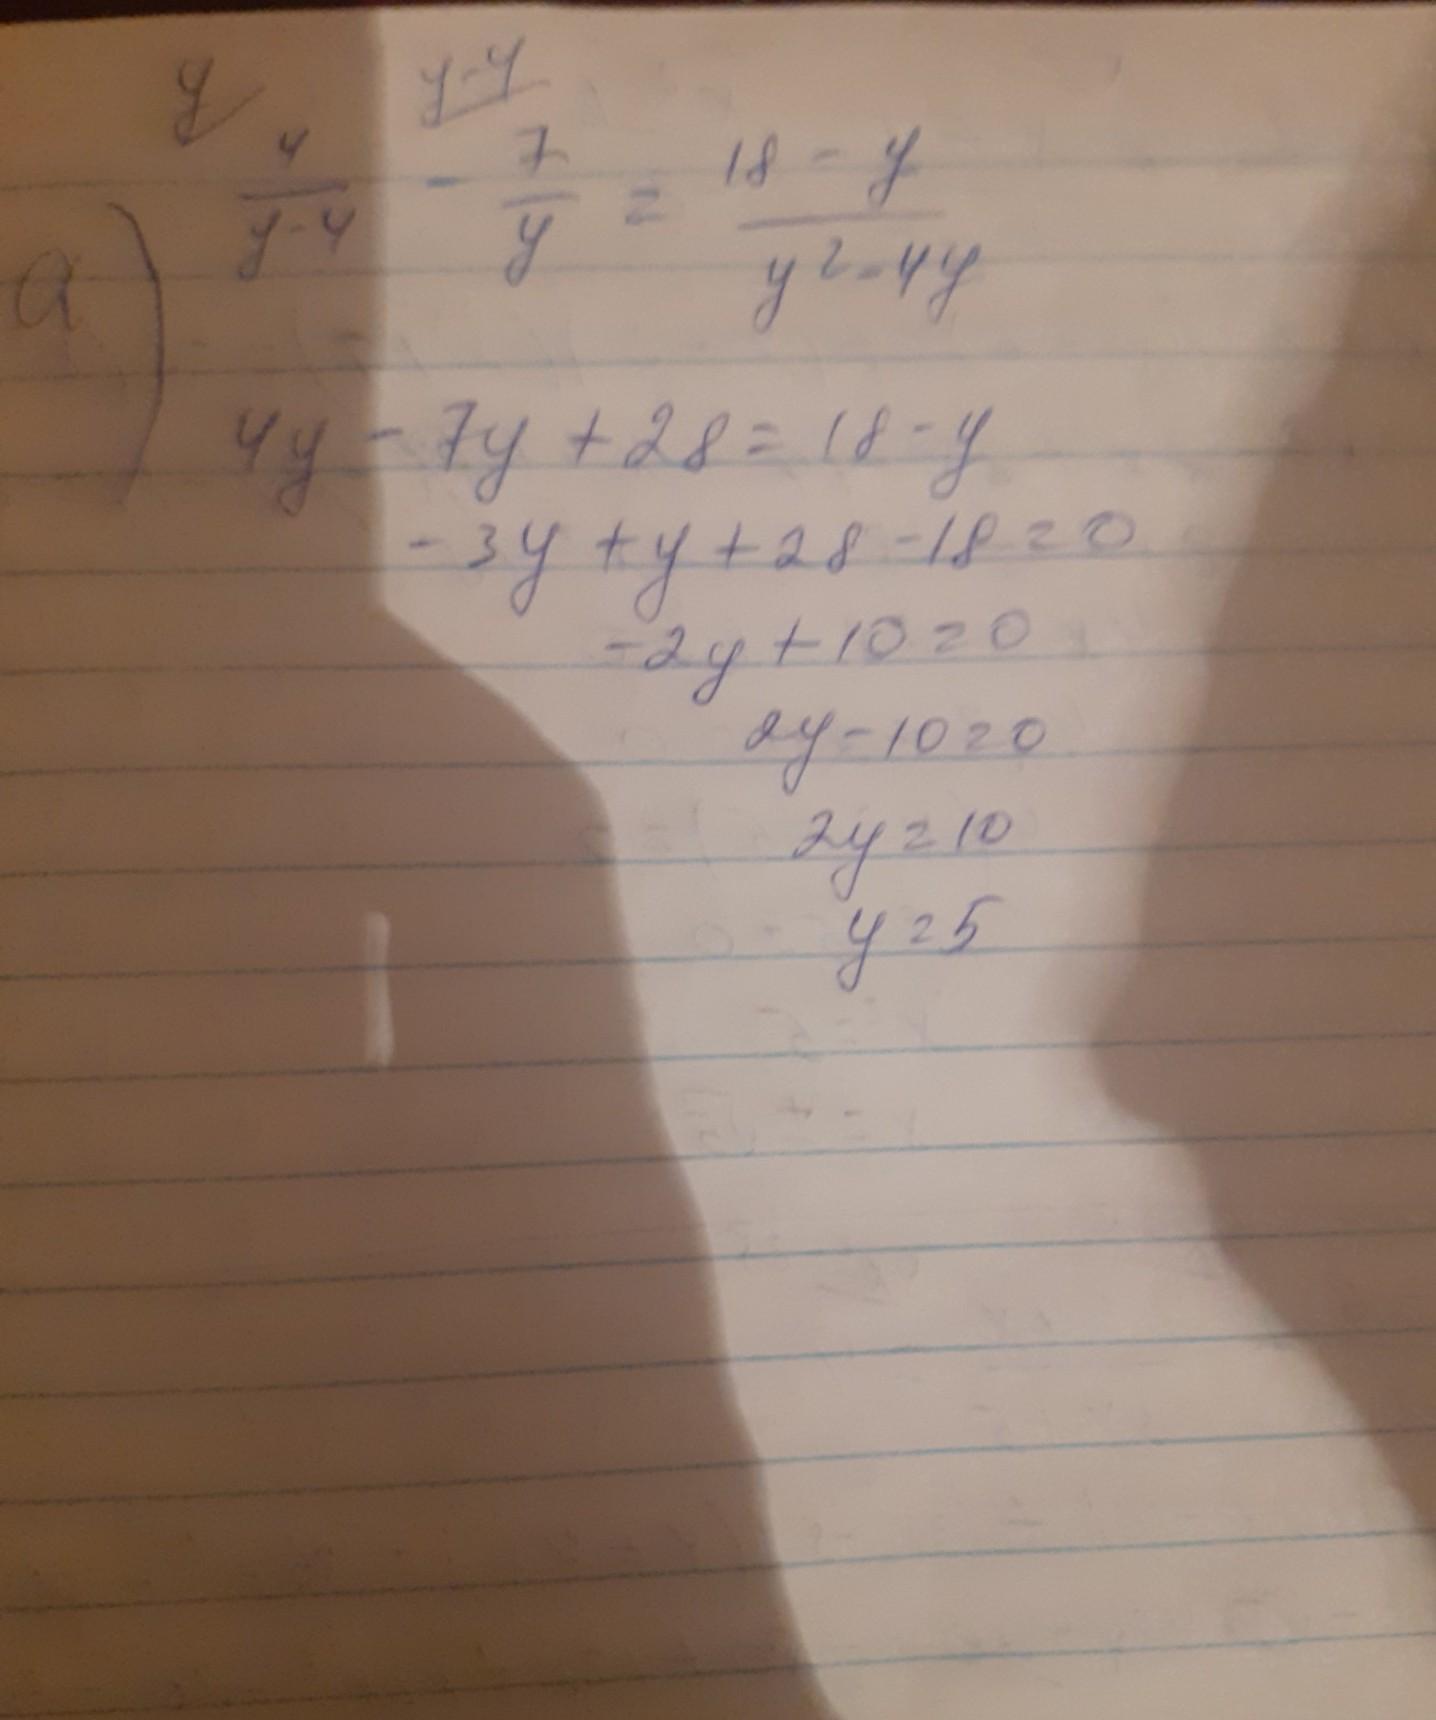 y y-4
a) 4/(y-4) - 7/y = (18-y)/(y²-4y)
4y-7y+28=18-y
-3y+y+28-18=0
-2y+10=0
2y-10=0
2y=10
y=5